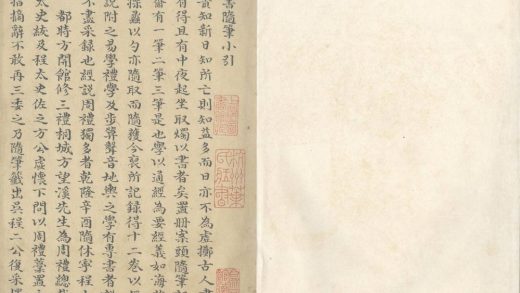 書隨筆小引
貴知新日知所亡則知益多而日亦不為虛擲古人書
有得且有中夜起坐取燭以書者矣置冊案頭隨筆
齋有一筆二筆三筆是也學以通經為要經義如海
蠡以勺亦隨取而隨獲今裒所記錄得十二卷以
說附之易學禮學及步算聲音地輿之學有專書者
不盡采錄也經說周禮獨多者乾隆辛酉隨休寧程
都時方開館修三禮桐城方望溪先生為周禮總
太史紱及程太史佐之方公虛懷下問以周禮藁置
指摘辭不敢再三委之乃隨筆籤出吳程二公復采
杭州葉氏藏書